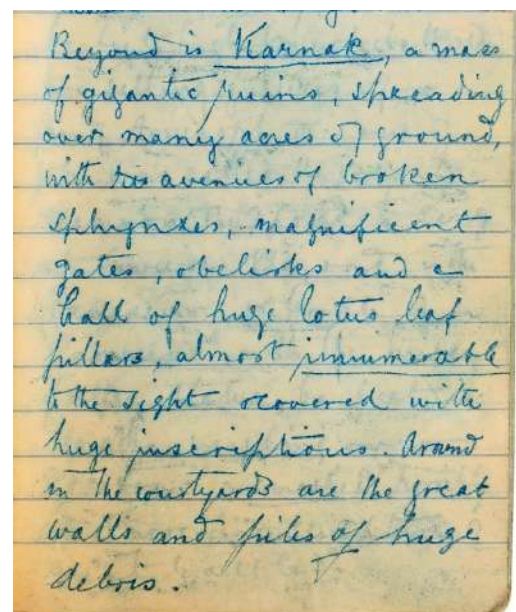 Beyond is Karnak, a mass
of gigantic ruins, spreading
over many acres of ground,
with its avenues of broken
sphynxes, magnificent
gates, obelisks and a
hall of huge lotus leaf
pillars, almost innumerable
to the sight & covered with
huge inscriptions. Around
in the courtyards are the great
walls and piles of huge
debris.